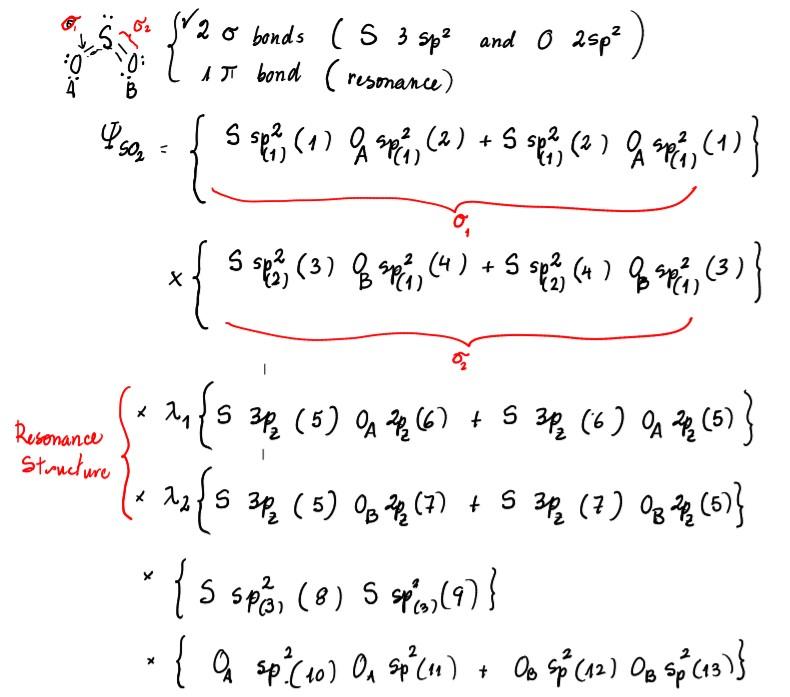 σ₁ S σ₂
:O: :O:
A B
✓ 2 σ bonds ( S 3sp² and O 2sp² )
1 π bond ( resonance )
Ψ_SO₂ = { S sp²₍₁₎ (1) O_A sp²₍₁₎ (2) + S sp²₍₁₎ (2) O_A sp²₍₁₎ (1) }
σ₁
× { S sp²₍₂₎ (3) O_B sp²₍₁₎ (4) + S sp²₍₂₎ (4) O_B sp²₍₁₎ (3) }
σ₂
Resonance Structure
× λ₁ { S 3p_z (5) O_A 2p_z (6) + S 3p_z (6) O_A 2p_z (5) }
× λ₂ { S 3p_z (5) O_B 2p_z (7) + S 3p_z (7) O_B 2p_z (5) }
× { S sp²₍₃₎ (8) S sp²₍₃₎ (9) }
× { O_A sp² (10) O_A sp² (11) + O_B sp² (12) O_B sp² (13) }